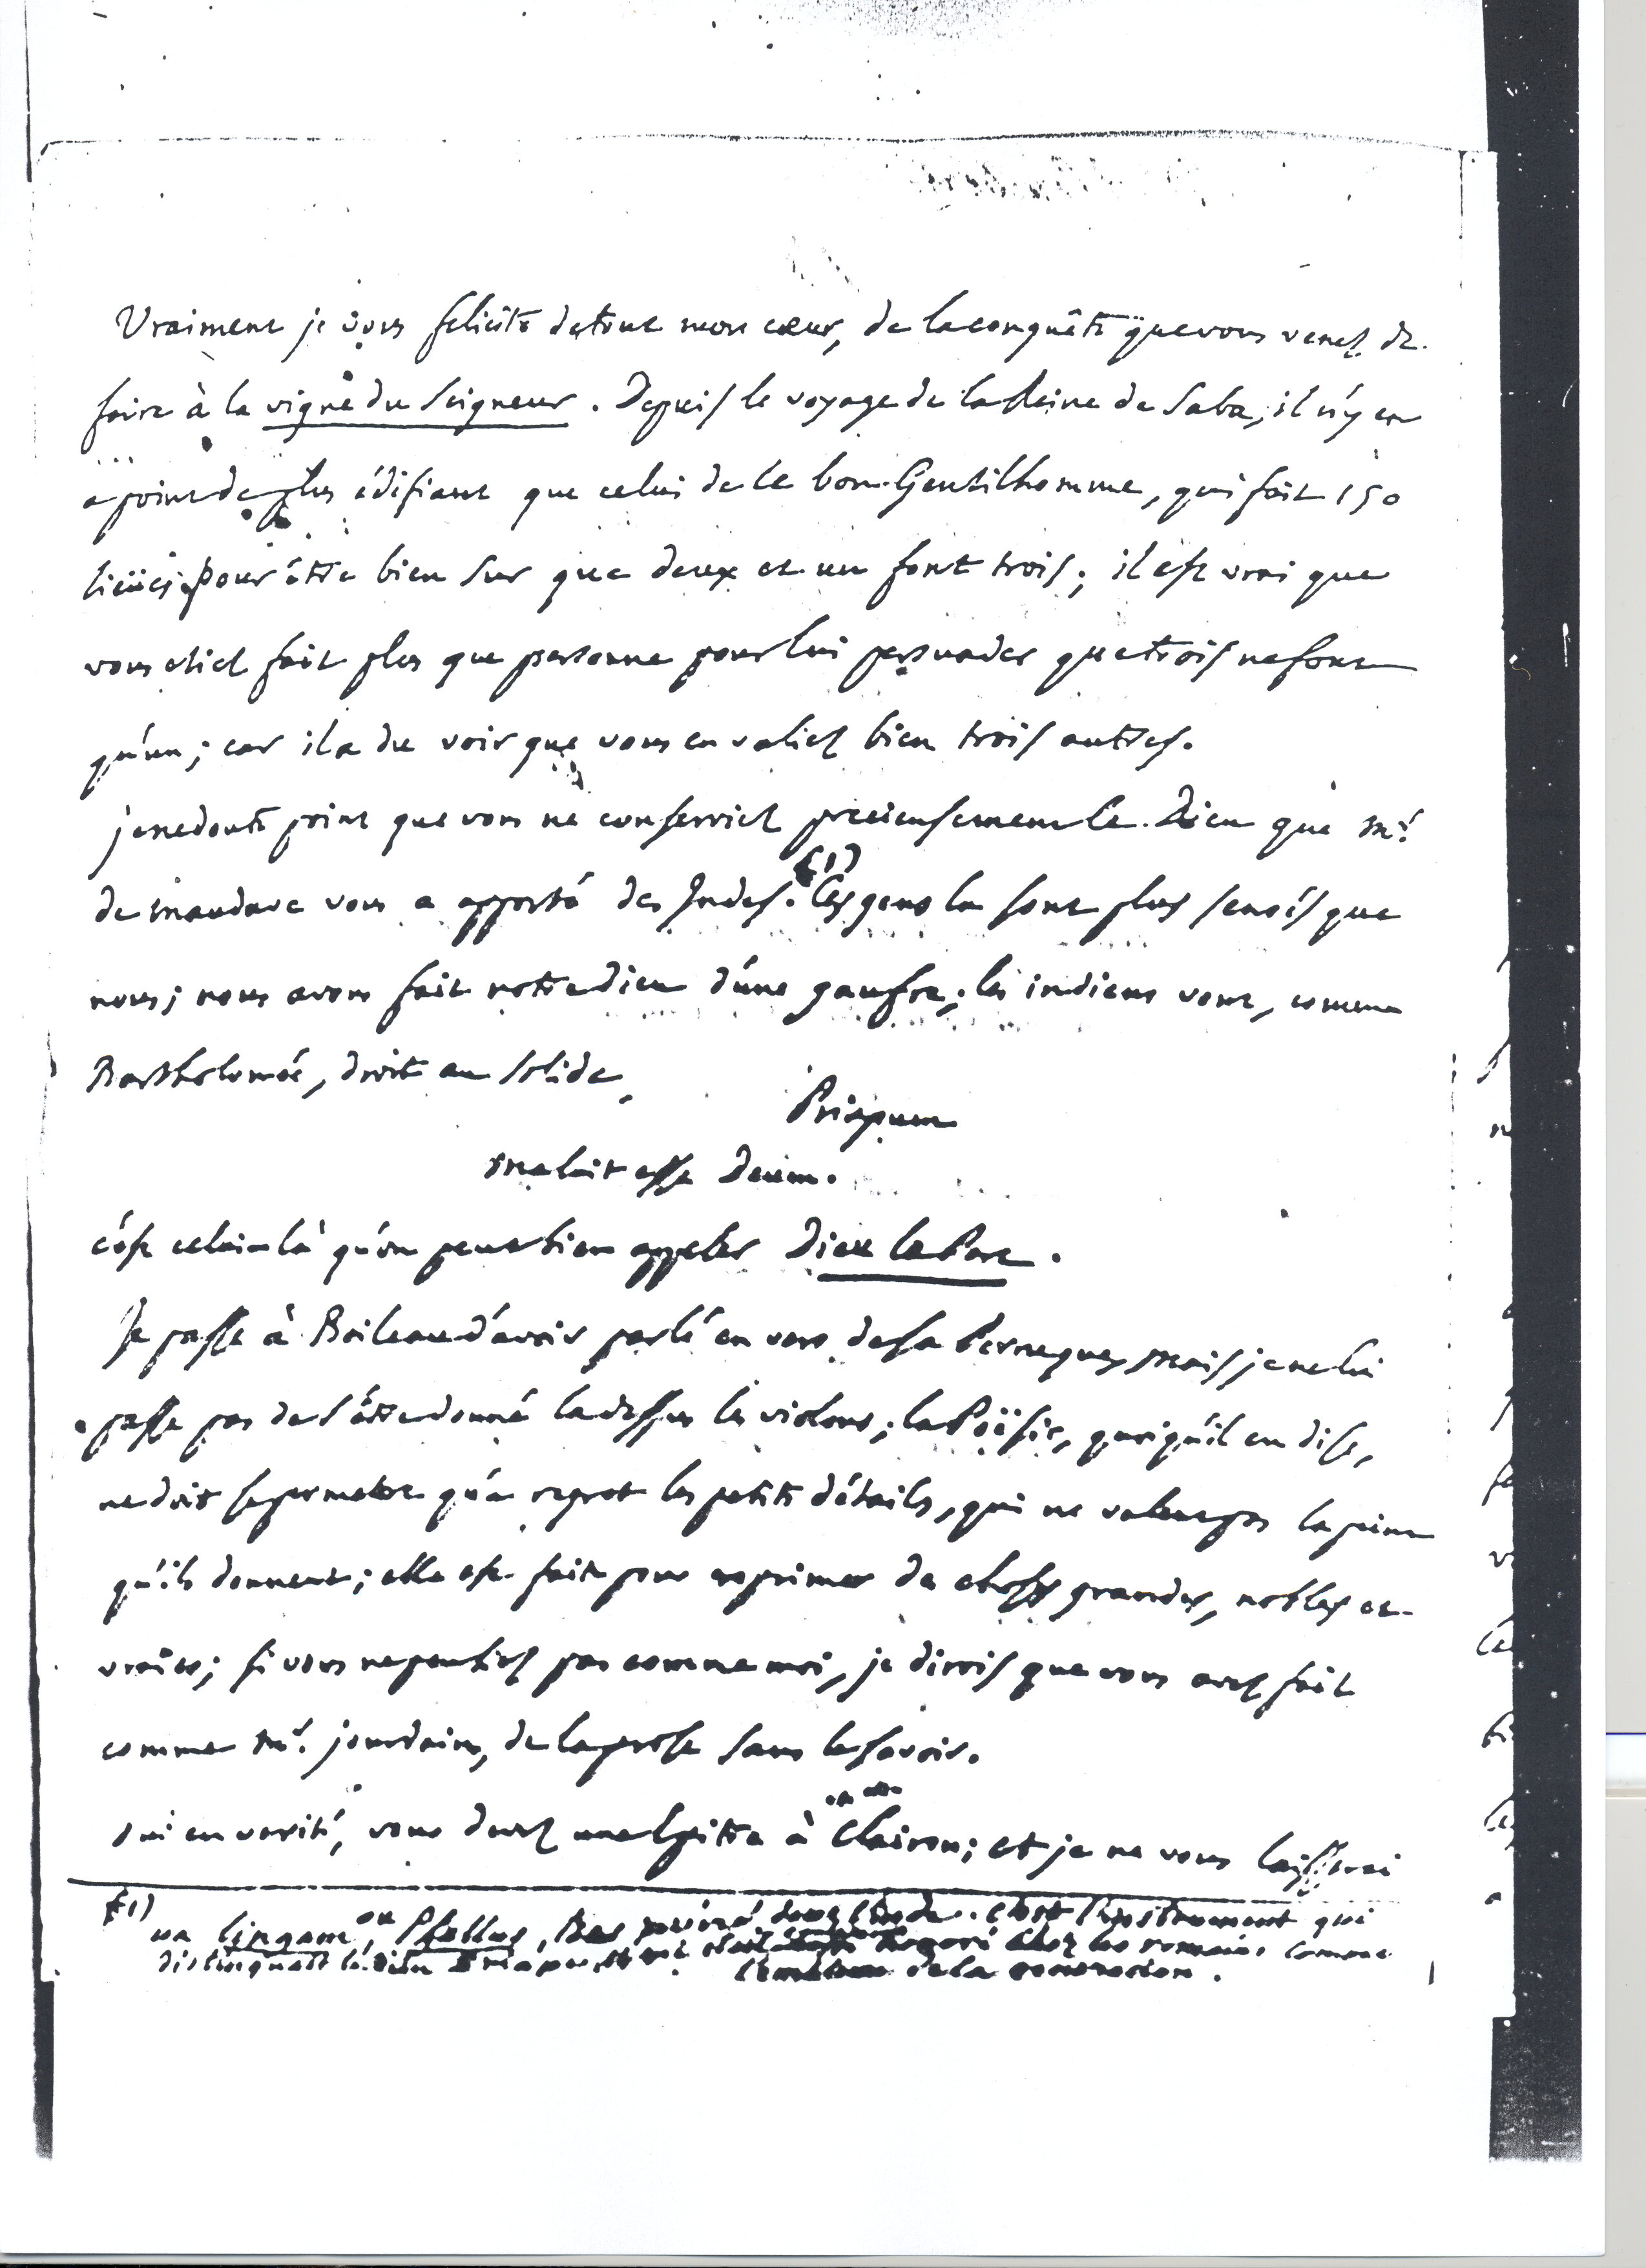 Vraiment je vous felicite de tout mon cœur, de la conquête que vous venez de
faire à la vigne du Seigneur. Depuis le voyage de la Reine de Saba, il n'y en
a point de plus édifiant que celui de ce bon Gentilhomme, qui fait 150
lieües pour être bien sur que deux et un font trois; il est vrai que
vous etiez fait plus que personne pour lui persuader que trois ne font
qu'un; car il a du voir que vous en valiez bien trois autres.
je ne doute point que vous ne conserviez precieusement le Dieu que Mr.
de Maudave vous a apporté des Indes. (1) Ces gens la sont plus sensés que
nous; nous avons fait notre dieu d'une gaufre; les indiens vont, comme
Barthelomée, droit au solide,
Priapum
maluit esse Deum.
c'est celui là qu'on peut bien appeler Dieu le Pere.
Je passe à Boileau d'avoir parlé en vers de sa Perruque, mais je ne lui
passe pas de s'être donné la dessus les violons; la Poësie, quoiqu'il en dise,
ne doit se permettre qu'a regret les petits détails, qui ne valent pas la peine
qu'ils donnent; elle est faite pour exprimer de choses grandes, nobles et
vraies; si vous ne pensiez pas comme moi, je dirois que vous avez fait
comme Mr. jourdain, de la prose sans le savoir.
oui en verité, vous devez une Epitre à Clairon; et je ne vous laisserai
(1)
un lingam, ou Phallus, revéré dans l'Inde. C'est l'instrument qui
distinguoit le dieu Priape et qui etait honoré chez les romains comme
l'embleme de la generation.